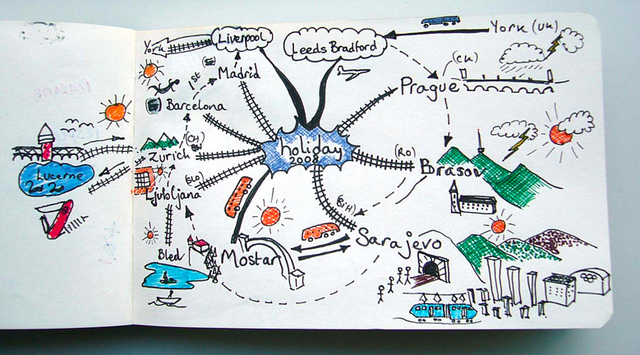 York
Liverpool
Leeds Bradford
York (UK)
1st
Madrid
(CK)
Prague
Barcelona
holiday
2008
(CH)
Zurich
(RO)
Brasov
Lucerne
(SLO)
Ljubljana
(BiH)
Sarajevo
Bled
Mostar